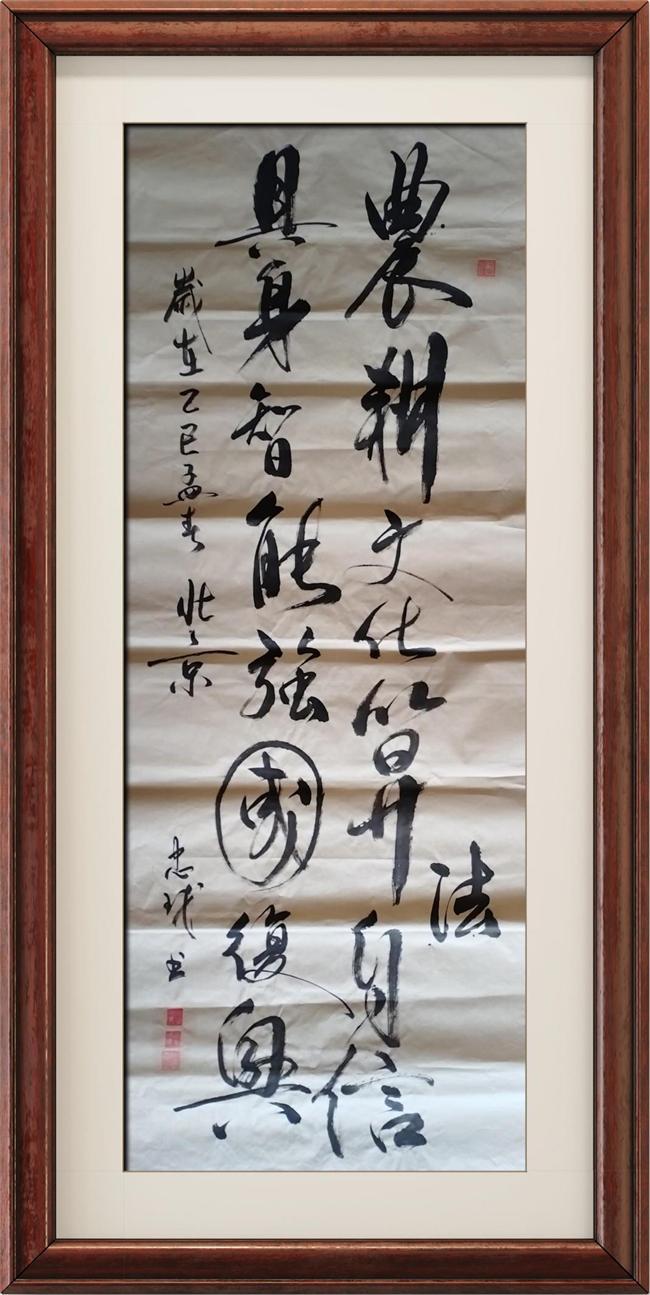 農耕文化算法自信
具身智能強國復興
歲在乙巳孟春 北京
忠戌書